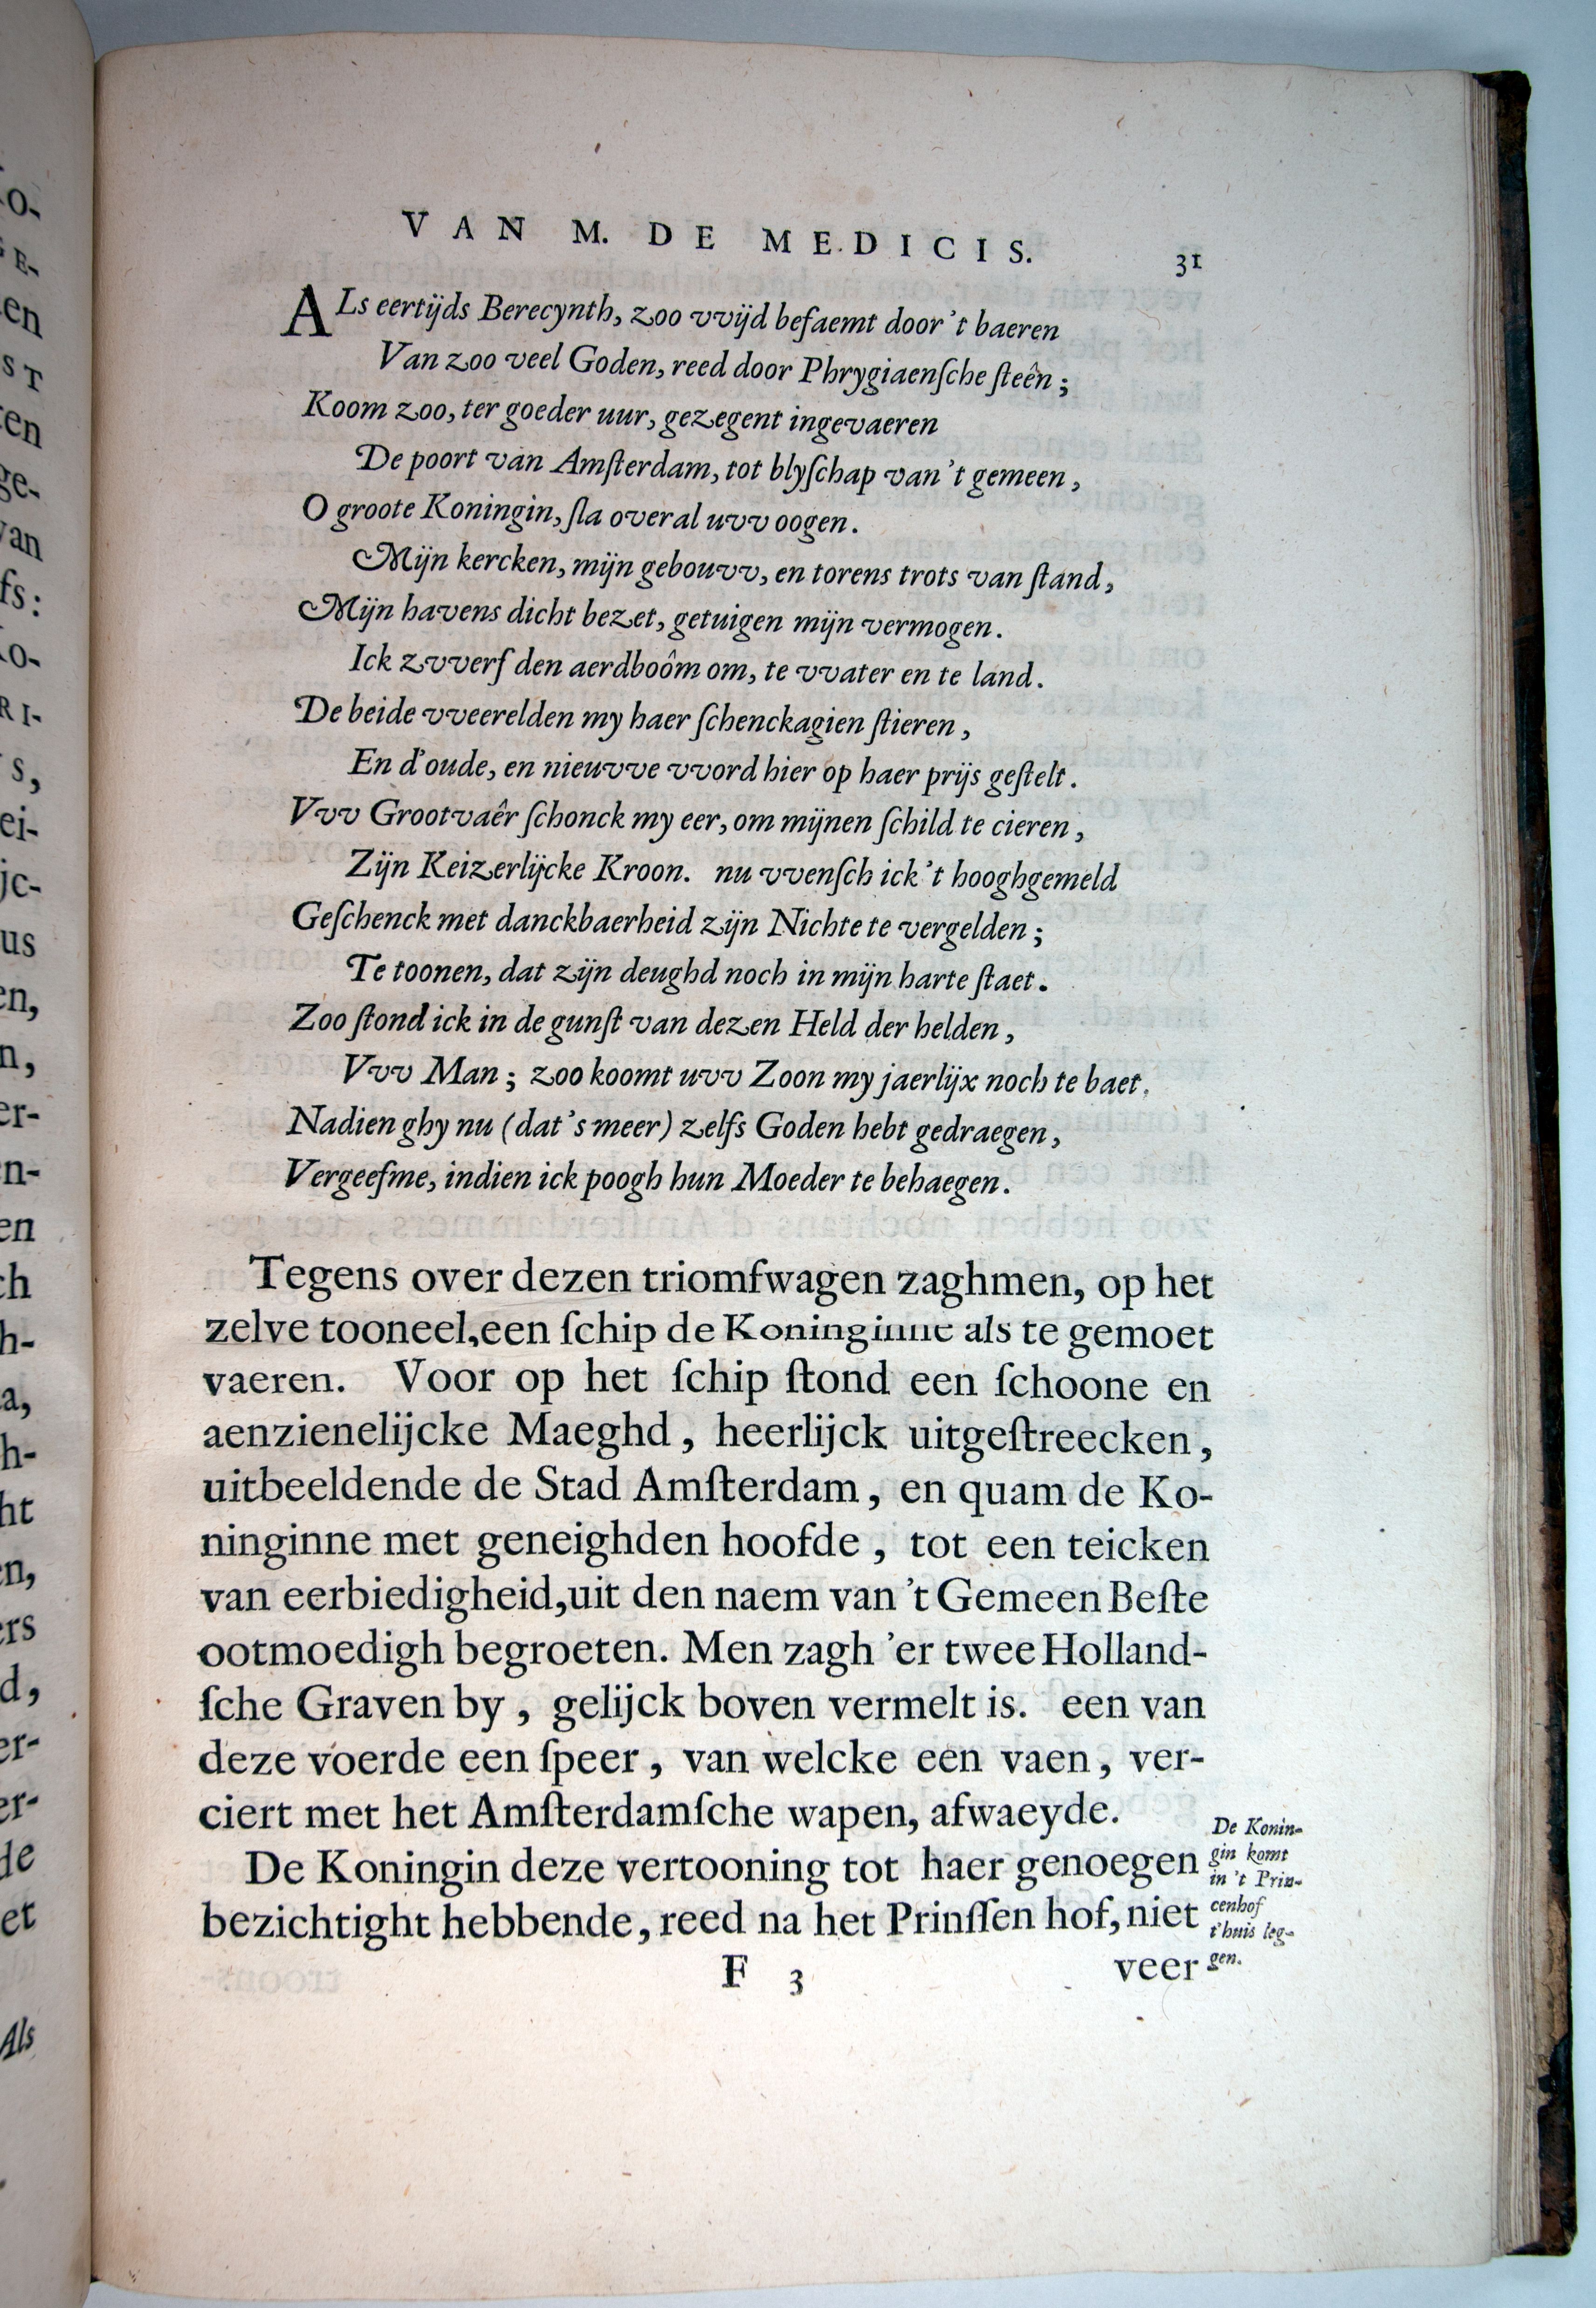 VAN M. DE MEDICIS. 31
ALs eertijds Berecynth, zoo vvijd befaemt door 't baeren
Van zoo veel Goden, reed door Phrygiaenſche ſteên;
Koom zoo, ter goeder uur, gezegent ingevaeren
De poort van Amſterdam, tot blyſchap van 't gemeen,
O groote Koningin, ſla overal uvv oogen.
Mijn kercken, mijn gebouvv, en torens trots van ſtand,
Mijn havens dicht bezet, getuigen mijn vermogen.
Ick zvverf den aerdboôm om, te vvater en te land.
De beide vveerelden my haer ſchenckagien ſtieren,
En d'oude, en nieuvve vvord hier op haer prijs geſtelt.
Vvv Grootvaêr ſchonck my eer, om mijnen ſchild te cieren,
Zijn Keizerlijcke Kroon. nu vvenſch ick 't hooghgemeld
Geſchenck met danckbaerheid zijn Nichte te vergelden;
Te toonen, dat zijn deughd noch in mijn harte ſtaet.
Zoo ſtond ick in de gunſt van dezen Held der helden,
Vvv Man; zoo koomt uvv Zoon my jaerlijx noch te baet.
Nadien ghy nu (dat 's meer) zelfs Goden hebt gedraegen,
Vergeefme, indien ick poogh hun Moeder te behaegen.
Tegens over dezen triomfwagen zaghmen, op het
zelve tooneel, een ſchip de Koninginne als te gemoet
vaeren. Voor op het ſchip ſtond een ſchoone en
aenzienelijcke Maeghd, heerlijck uitgeſtreecken,
uitbeeldende de Stad Amſterdam, en quam de Ko-
ninginne met geneighden hoofde, tot een teicken
van eerbiedigheid, uit den naem van 't Gemeen Beſte
ootmoedigh begroeten. Men zagh 'er twee Holland-
ſche Graven by, gelijck boven vermelt is. een van
deze voerde een ſpeer, van welcke een vaen, ver-
ciert met het Amſterdamſche wapen, afwaeyde.
De Koningin deze vertooning tot haer genoegen
bezichtight hebbende, reed na het Prinſſen hof, niet
De Konin-
gin komt
in 't Prin-
cenhof
t'huis leg-
gen.
F 3 veer